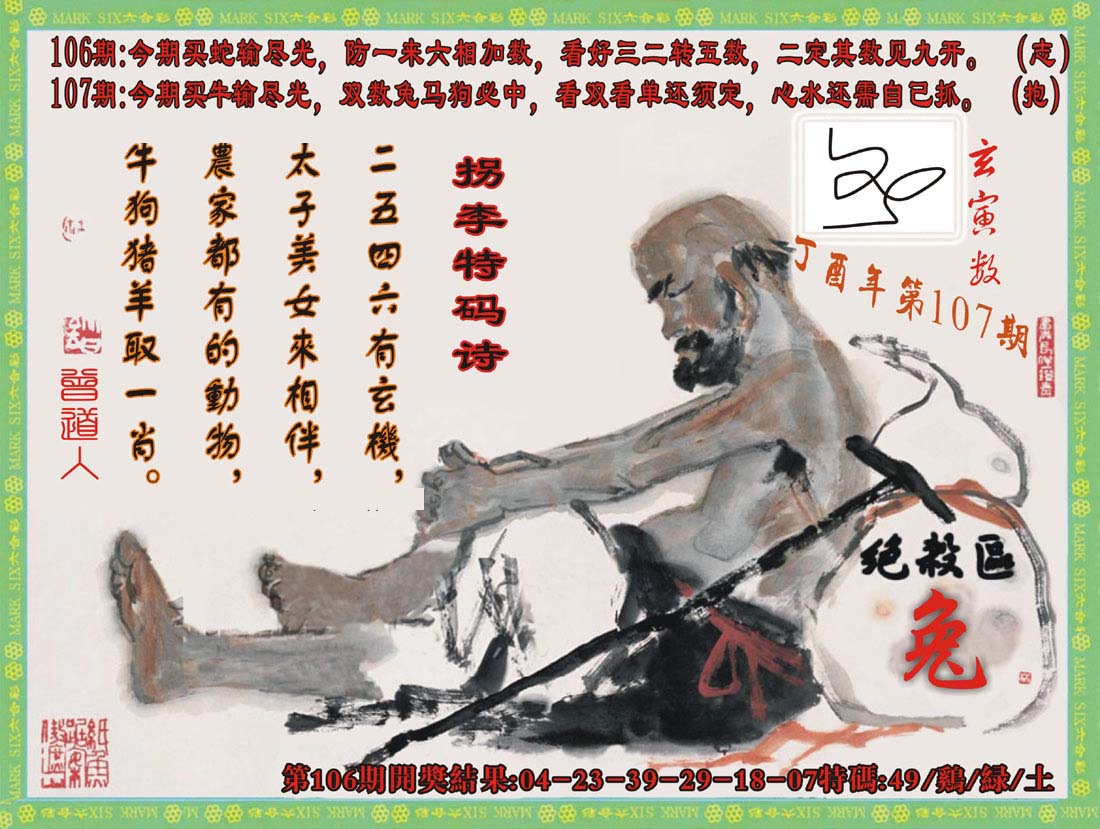 MARK SIX六合彩
106期:今期买蛇输尽光，防一来六相加数，看好三二转五数，二定其数见九开。 (志)
107期:今期买牛输尽光，双数兔马狗必中，看双看单还须定，心水还需自已抓。 (抱)
玄寅数
丁酉年第107期
拐李特码诗
二五四六有玄機，
太子美女來相伴，
農家都有的動物，
牛狗猪羊取一肖。
曾道人
绝殺區
兔
第106期開獎結果:04-23-39-29-18-07特碼:49/鷄/緑/土